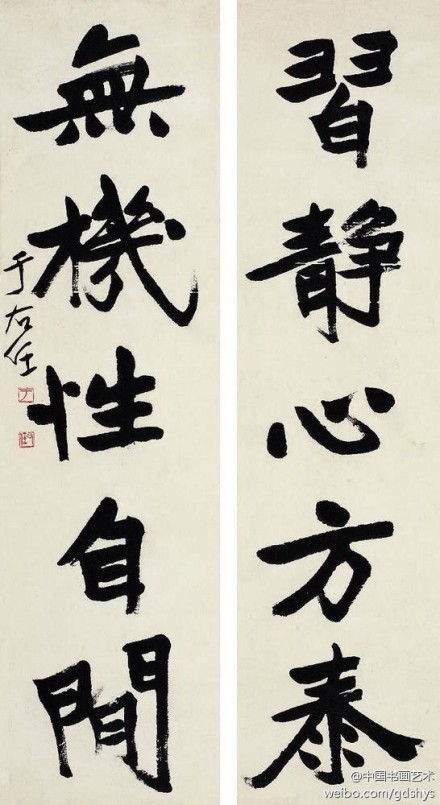 習靜心方泰
無機性自閒
于右任
@中国书画艺术
weibo.com/gdshys